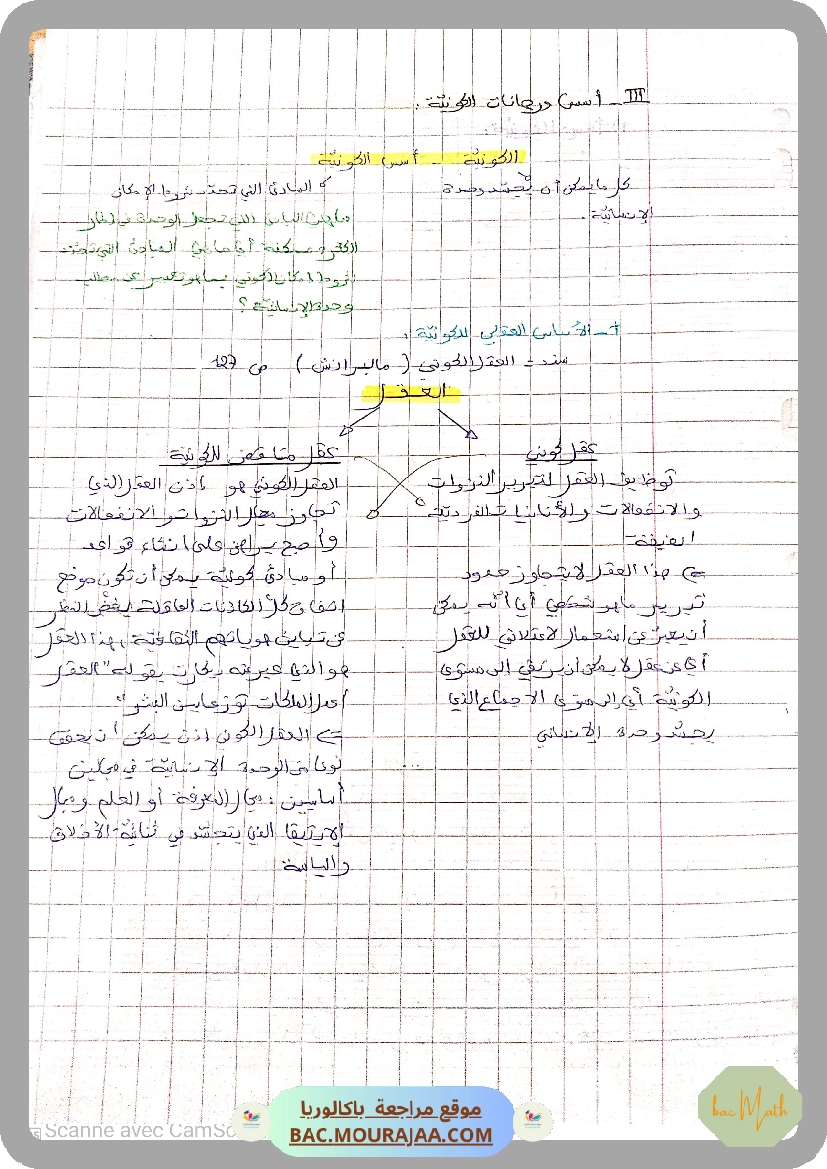 III - أسس ورهانات الكونيّة :
الكونيّة - أسس الكونيّة
كل ما يمكن أن يُجسّد وحدة
الإنسانيّة.
المبادئ التي تحدّد شروط الإمكان
ماهي المبادئ التي تجعل الوحدة في إطار
الكثرة ممكنة أي ماهي المبادئ التي تحدّد
شروط إمكان الكوني بما هو تعبير عن مطلب
وحدة الإنسانيّة ؟
1 - الأساس العقلي للكونيّة :
سند = العقل الكوني ( مالبرانش ) ص 127
العقل
عقل كوني
توظيف العقل لتبرير النزوات
والانفعالات والأنانيات الفرديّة
الضيقة
<= هذا العقل لا يتجاوز حدود
تبرير ما هو شخصي أي أنّه يمكن
أن يعبّر عن استعمال لاعقلاني للعقل
أي عن عقل لا يمكن أن يرتقي إلى مستوى
الكونيّة أي إلى مستوى الاجماع الذي
يجسّد وحدة الإنساني
عقل مناقض للكونيّة
العقل الكوني هو إذن العقل الذي
تجاوز مجال النزوات والانفعالات
وأصبح يراهن على انشاء قواعد
أو مبادئ كونيّة يمكن أن تكون موضع
اجماع كلّ الكائنات العاقلة بغضّ النظر
عن تباين هوياتهم الثقافيّة، هذا العقل
هو الذي عبر عنه ديكارت بقوله "العقل
أعدل الملكات توزعا بين البشر"
<= العقل الكوني إذن يمكن أن يحقق
نوعا من الوحدة الإنسانيّة في مجالين
أساسيين : مجال المعرفة أو العلم ومجال
الإيتيقا الذي يتجسّد في ثنائيّة الأخلاق
والسياسة
موقع مراجعة باكالوريا
BAC.MOURAJAA.COM
bac Math
Scanne avec CamSc